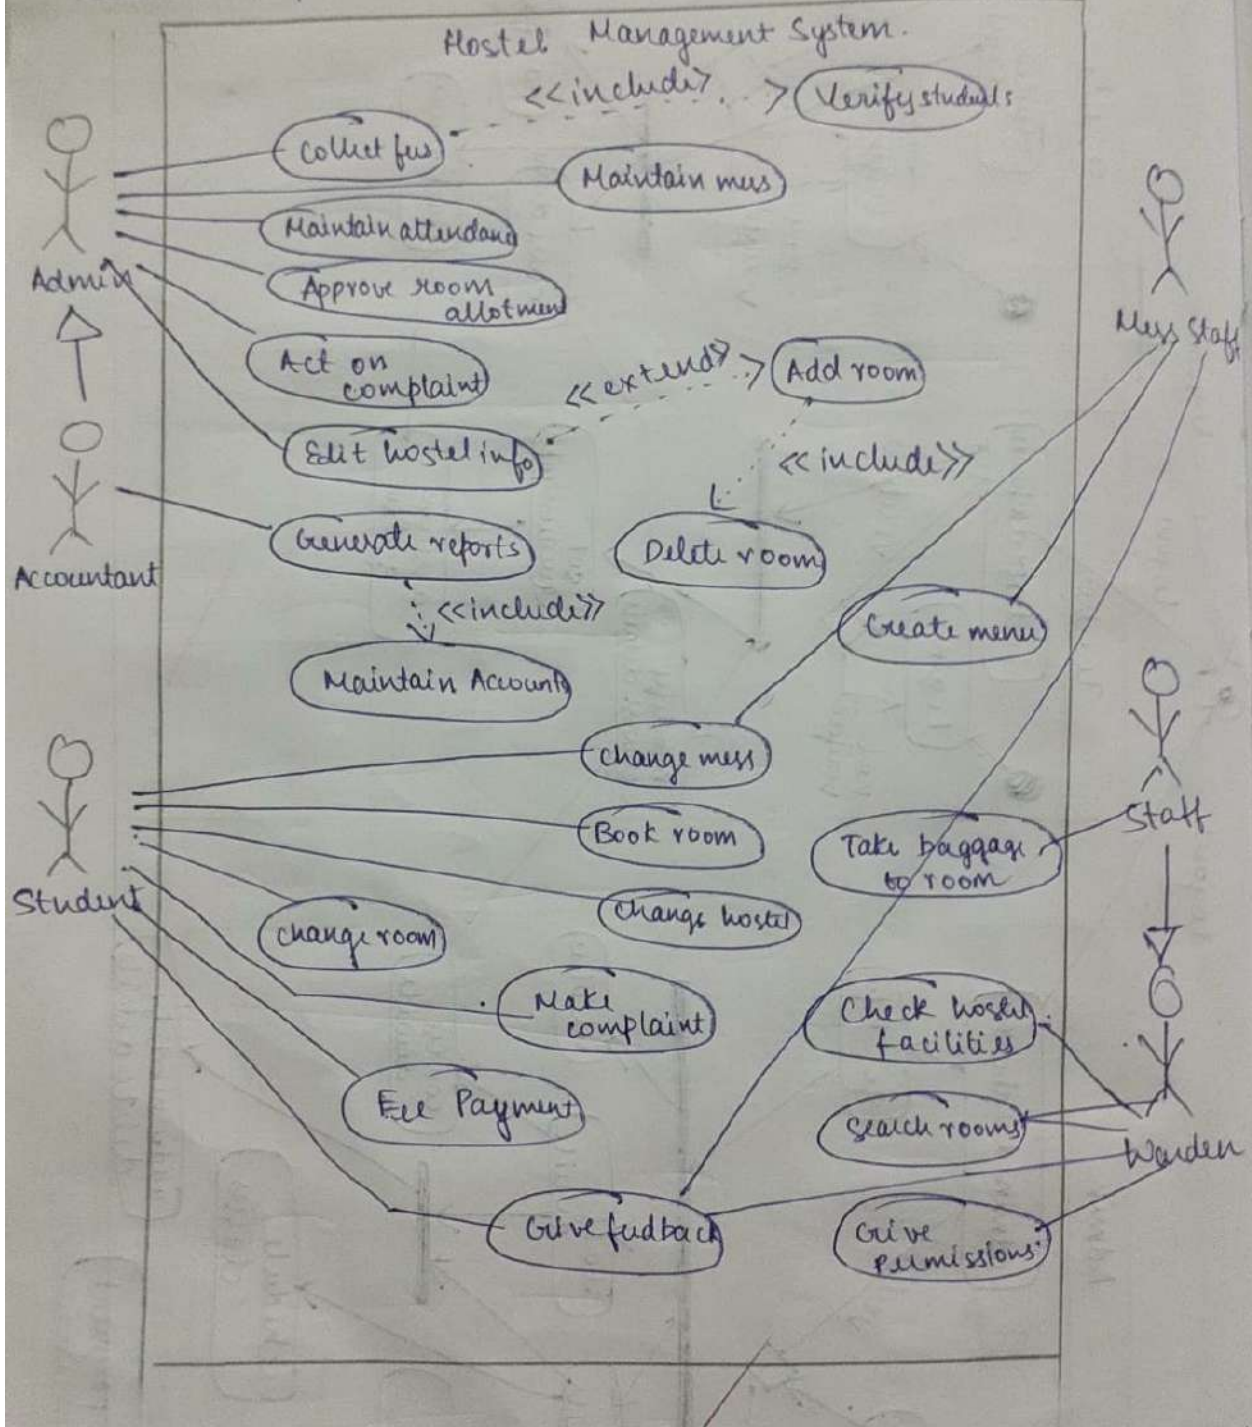 Hostel Management System.
<<include>>
Verify students
Collect fees
Maintain mess
Maintain attendance
Admin
Approve room
allotment
Mess Staff
Act on
complaint
<<extend>>
Add room
Edit hostel info
<<include>>
Generate reports
Delete room
Accountant
<<include>>
Create menu
Maintain Accounts
Change mess
Book room
Staff
Take baggage
to room
Student
Change room
Change hostel
Make
complaint
Check hostel
facilities
Fee Payment
Search rooms
Warden
Give feedback
Give
permissions